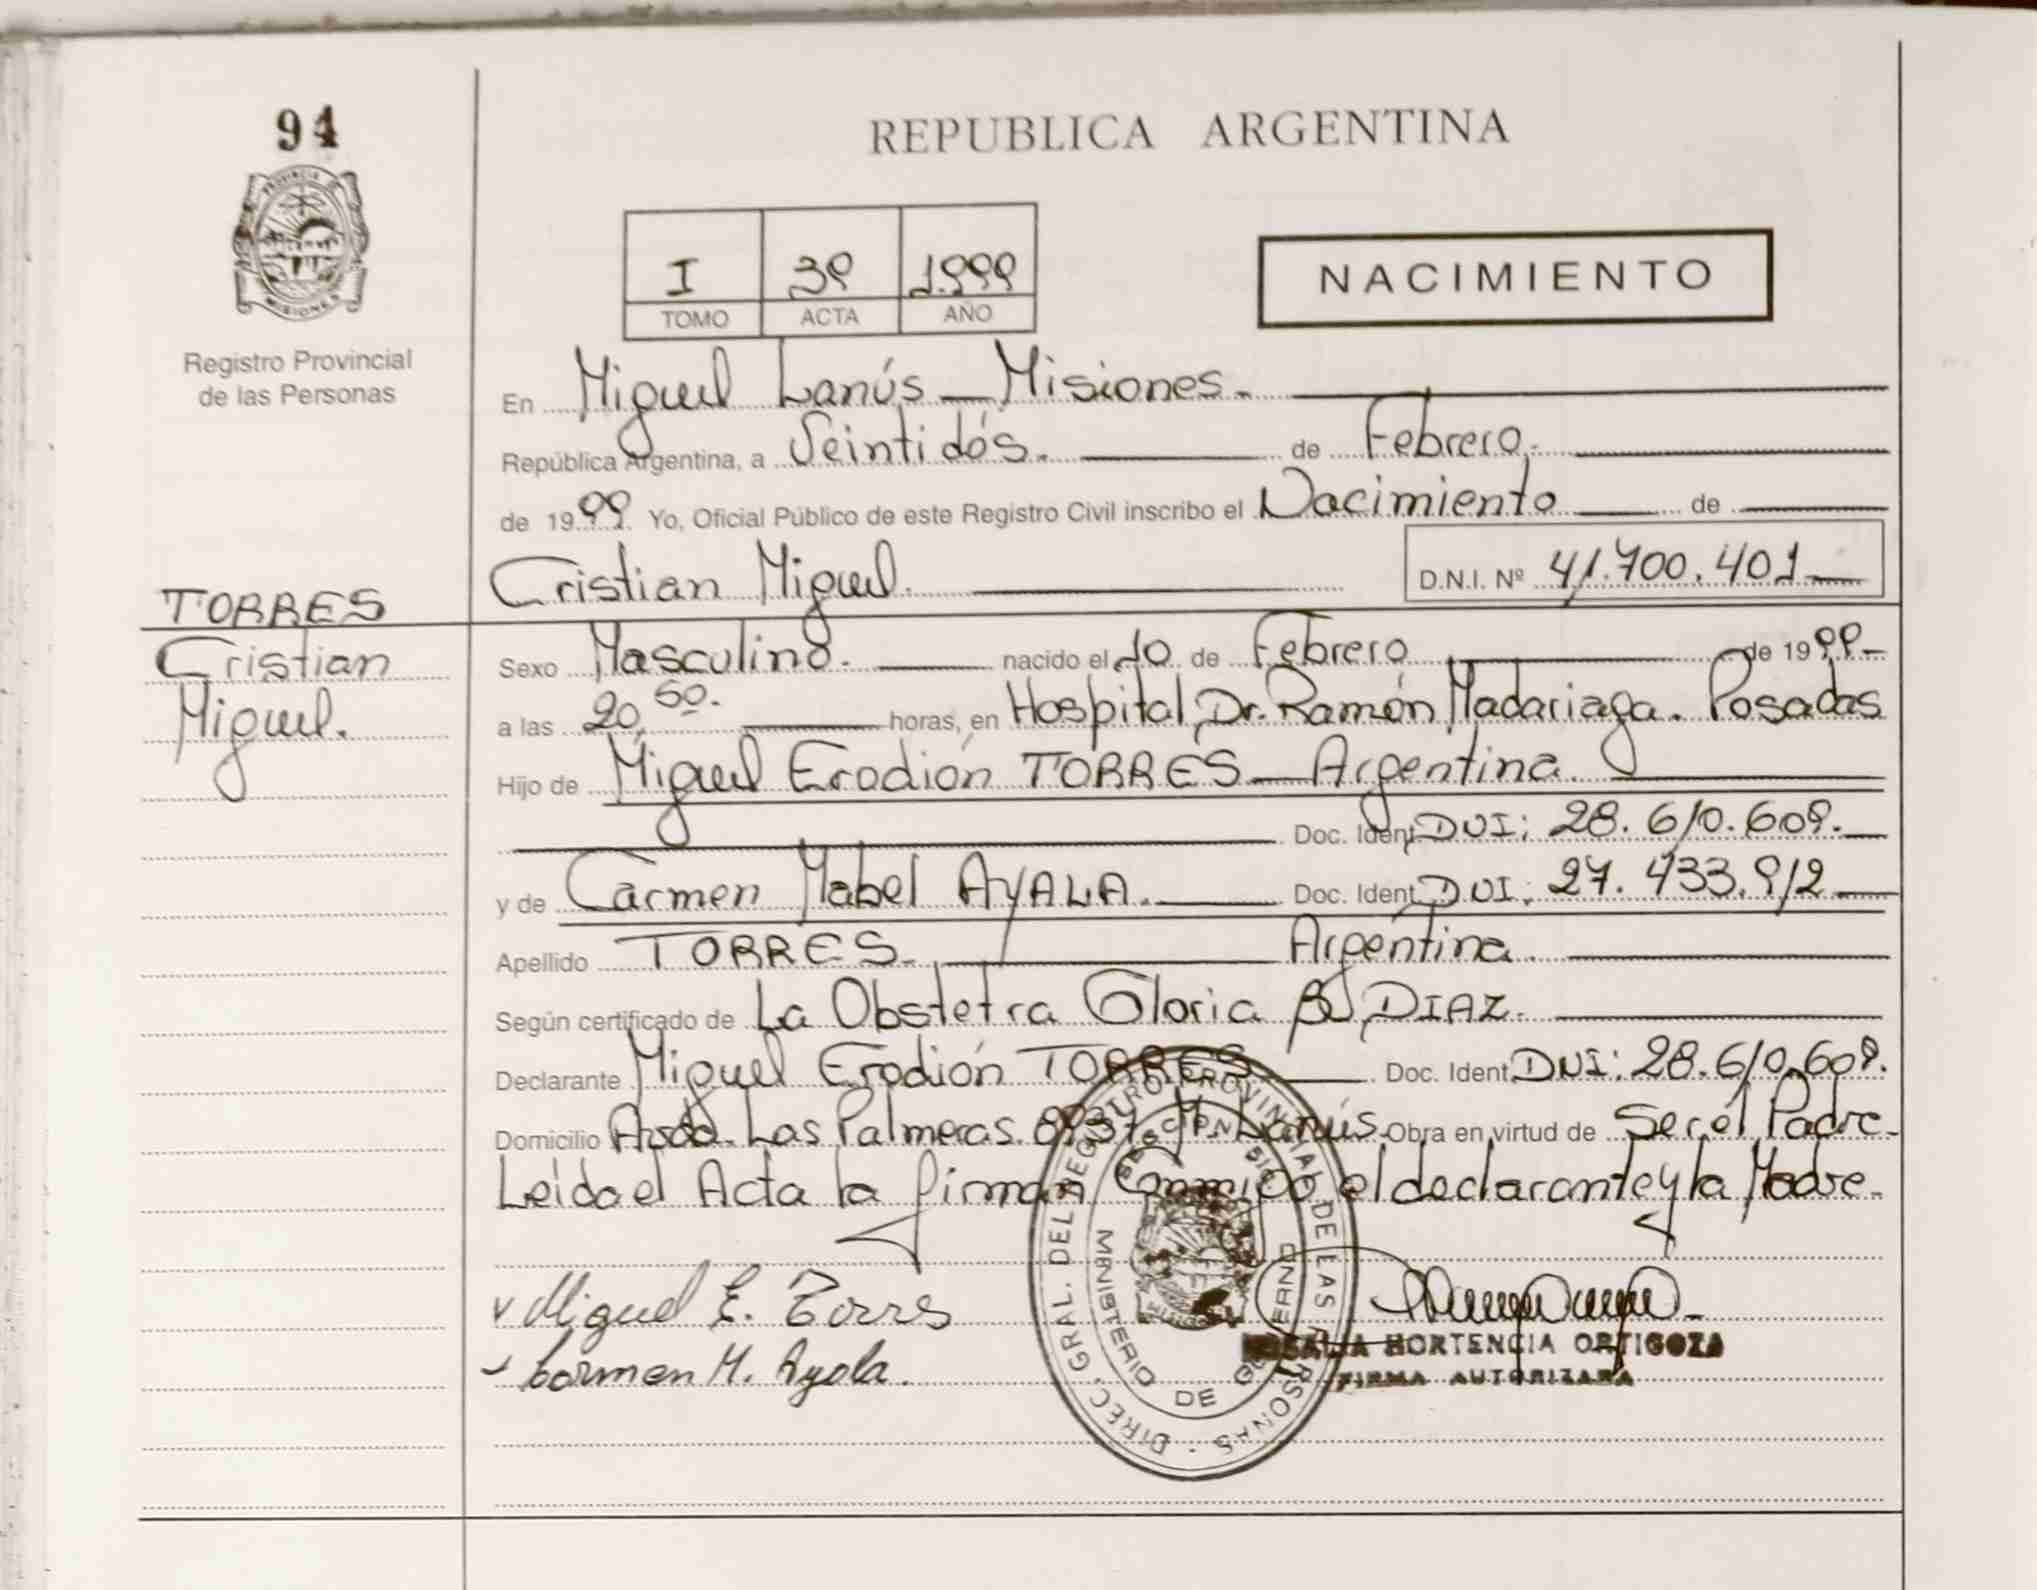 94
PROVINCIA DE
MISIONES
Registro Provincial
de las Personas
REPUBLICA ARGENTINA
I 39 1.999
TOMO ACTA AÑO
NACIMIENTO
En Miguel Lanús — Misiones.
República Argentina, a Veintidós. de Febrero.
de 1999 Yo, Oficial Público de este Registro Civil inscribo el Nacimiento de
Cristian Miguel. D.N.I. Nº 41.700.401
TORRES
Cristian
Miguel.
Sexo Masculino. nacido el 10 de Febrero de 1999
a las 20,50. horas, en Hospital Dr. Ramón Madariaga. Posadas
Hijo de Miguel Erodión TORRES — Argentina
Doc. Ident. DNI: 28.610.609.
y de Carmen Mabel AYALA. Doc. Ident. DNI: 27.433.912
Apellido TORRES. Argentina.
Según certificado de La Obstetra Gloria B. DIAZ.
Declarante Miguel Erodión TORRES Doc. Ident. DNI: 28.610.609.
Domicilio Avda. Las Palmeras. M. Lanús. Obra en virtud de Ser él Padre
Leída el Acta la firman Conmigo el declarante y la Madre.
Miguel E. Torres
Carmen M. Ayala.
HORTENCIA ORTIGOZA
FIRMA AUTORIZADA
DIREC. GRAL. DEL REGISTRO PROVINCIAL DE LAS PERSONAS
MINISTERIO DE GOBIERNO